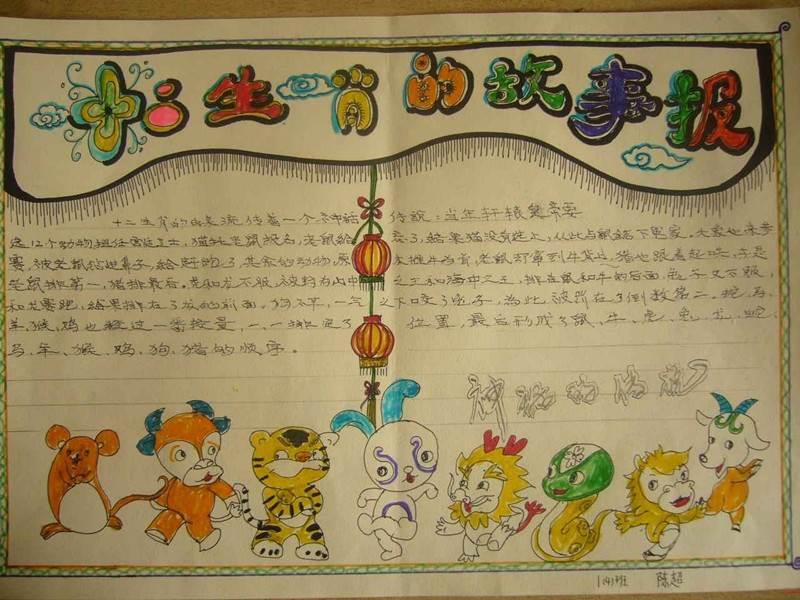 十二生肖的故事报
十二生肖的由来流传着一个神话传说：当年轩辕黄帝要
选12个动物担任宫廷卫士，猫托老鼠报名，老鼠给忘了，结果猫没有选上，从此与鼠结下冤家。大象也来参
赛，被老鼠钻进鼻子，给赶跑了，其余的动物，原本推牛为首，老鼠却窜到牛背上，猪也跟着起哄，于是
老鼠排第一，猪排最后。虎和龙不服，被封为山中之王和海中之王，排在鼠和牛的后面。兔子又不服，
和龙赛跑，结果排在了龙的前面，狗不平，一气之下咬了兔子，为此被罚在了倒数第二。蛇、马、
羊、猴、鸡也经过一番较量，一一排定了位置，最后形成了鼠、牛、虎、兔、龙、蛇、
马、羊、猴、鸡、狗、猪的顺序。
神的传说
陈超